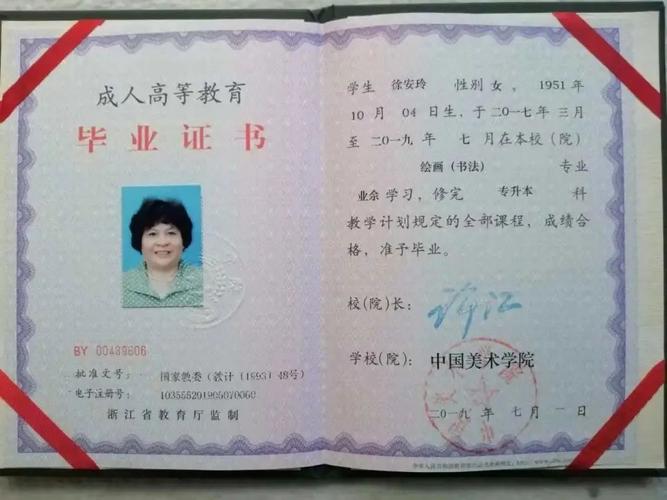 成人高等教育
毕业证书
BY 00489606
批准文号： 国家教委（教计［1993］48号）
电子注册号：
浙江省教育厅监制
学生 徐安玲 性别 女，1951年
10月 04日生，于二〇一七年 三月
至二〇一九年 七月在本校（院）
绘画（书法） 专业
业余学习，修完 专升本 科
教学计划规定的全部课程，成绩合
格，准予毕业。
校（院）长：
学校（院）： 中国美术学院
二〇一九年 七月 一日